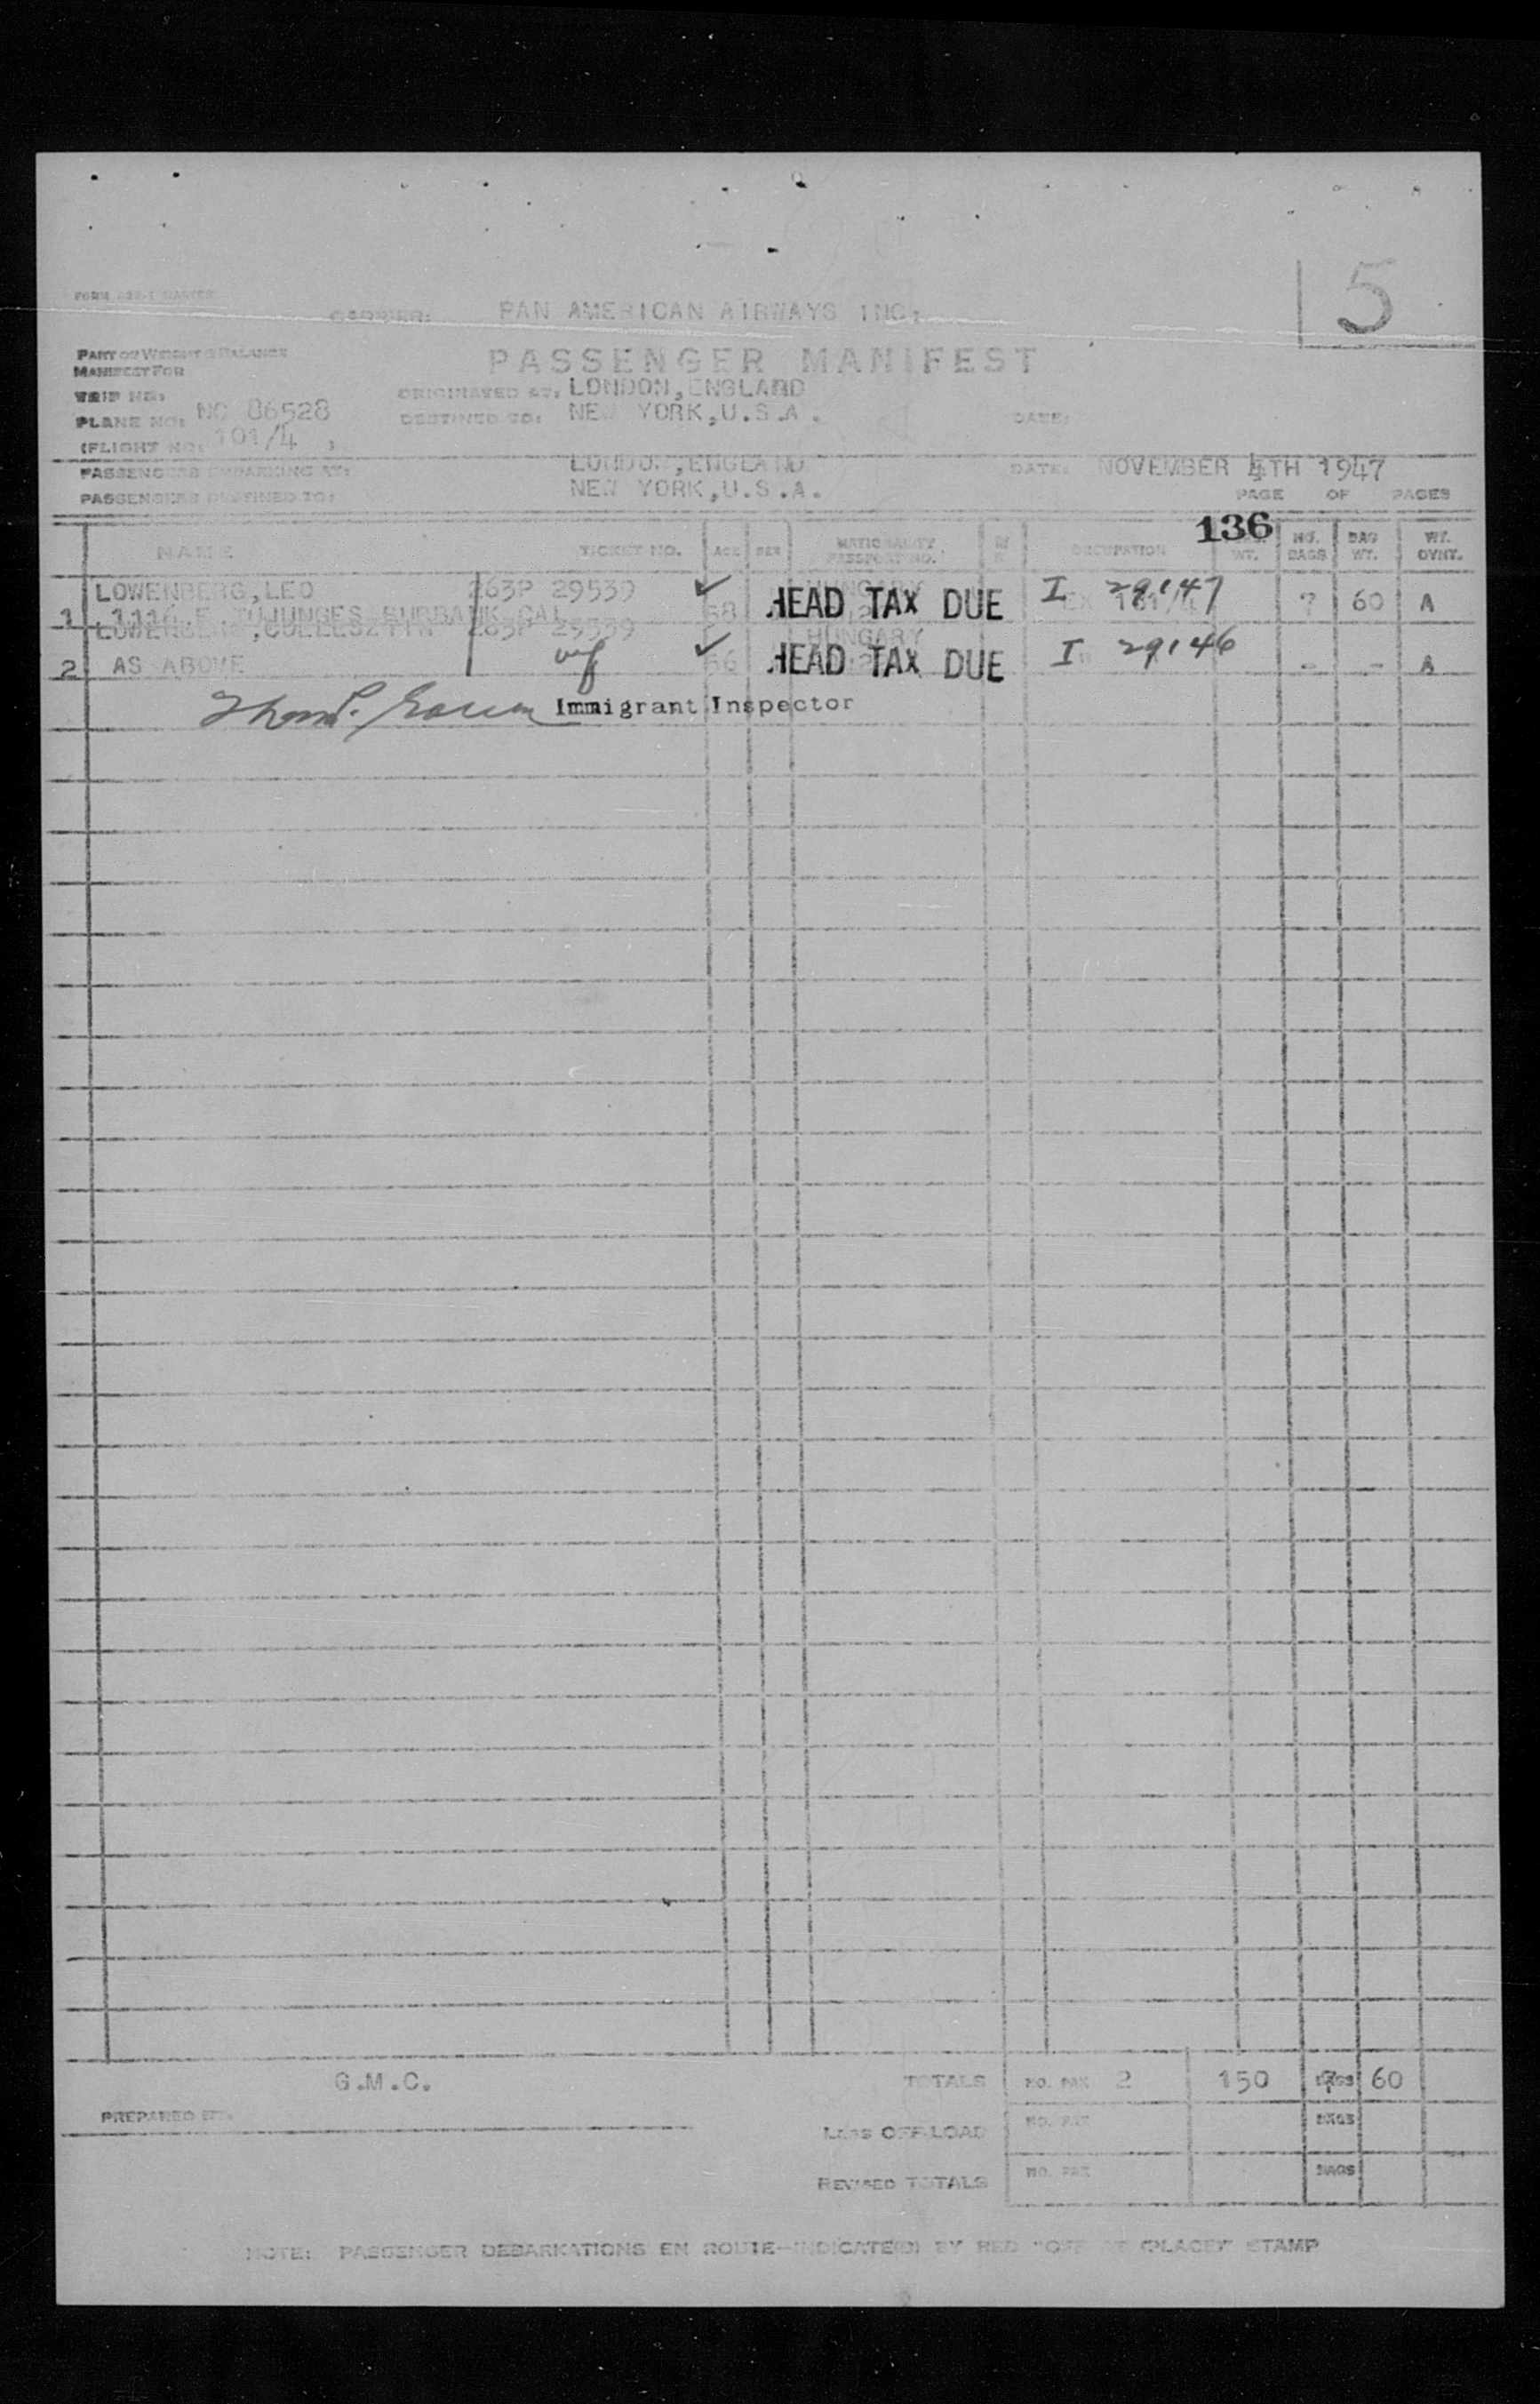 5
CARRIER: PAN AMERICAN AIRWAYS INC.
PART OF WEIGHT & BALANCE
MANIFEST FOR
PASSENGER MANIFEST
TRIP NO:
ORIGINATED AT: LONDON, ENGLAND
PLANE NO: NC 86528
DESTINED TO: NEW YORK, U.S.A.
DATE:
(FLIGHT NO: 101/4 )
PASSENGERS EMBARKING AT: LONDON, ENGLAND
DATE: NOVEMBER 4TH 1947
PASSENGERS DESTINED TO: NEW YORK, U.S.A.
PAGE OF PAGES
136
NAME TICKET NO. AGE SEX NATIONALITY PASSPORT NO. OCCUPATION WT. NO. BAGS BAG WT. WT. OVHT.
LOWENBERG, LEO 263P 29539 HUNGARY
1 BURBANK CAL 58 HEAD TAX DUE I 29147 ? 60 A
LOWENBERG, 263P 29539 HUNGARY
2 AS ABOVE 56 HEAD TAX DUE I 29146 - - A
Immigrant Inspector
G.M.C.
TOTALS NO. PAX 2 150 BAGS 60
PREPARED BY:
LESS OFF-LOAD NO. PAX BAGS
REVISED TOTALS NO. PAX BAGS
NOTE: PASSENGER DEBARKATIONS EN ROUTE-INDICATE(D) BY RED "OFF AT (PLACE)" STAMP